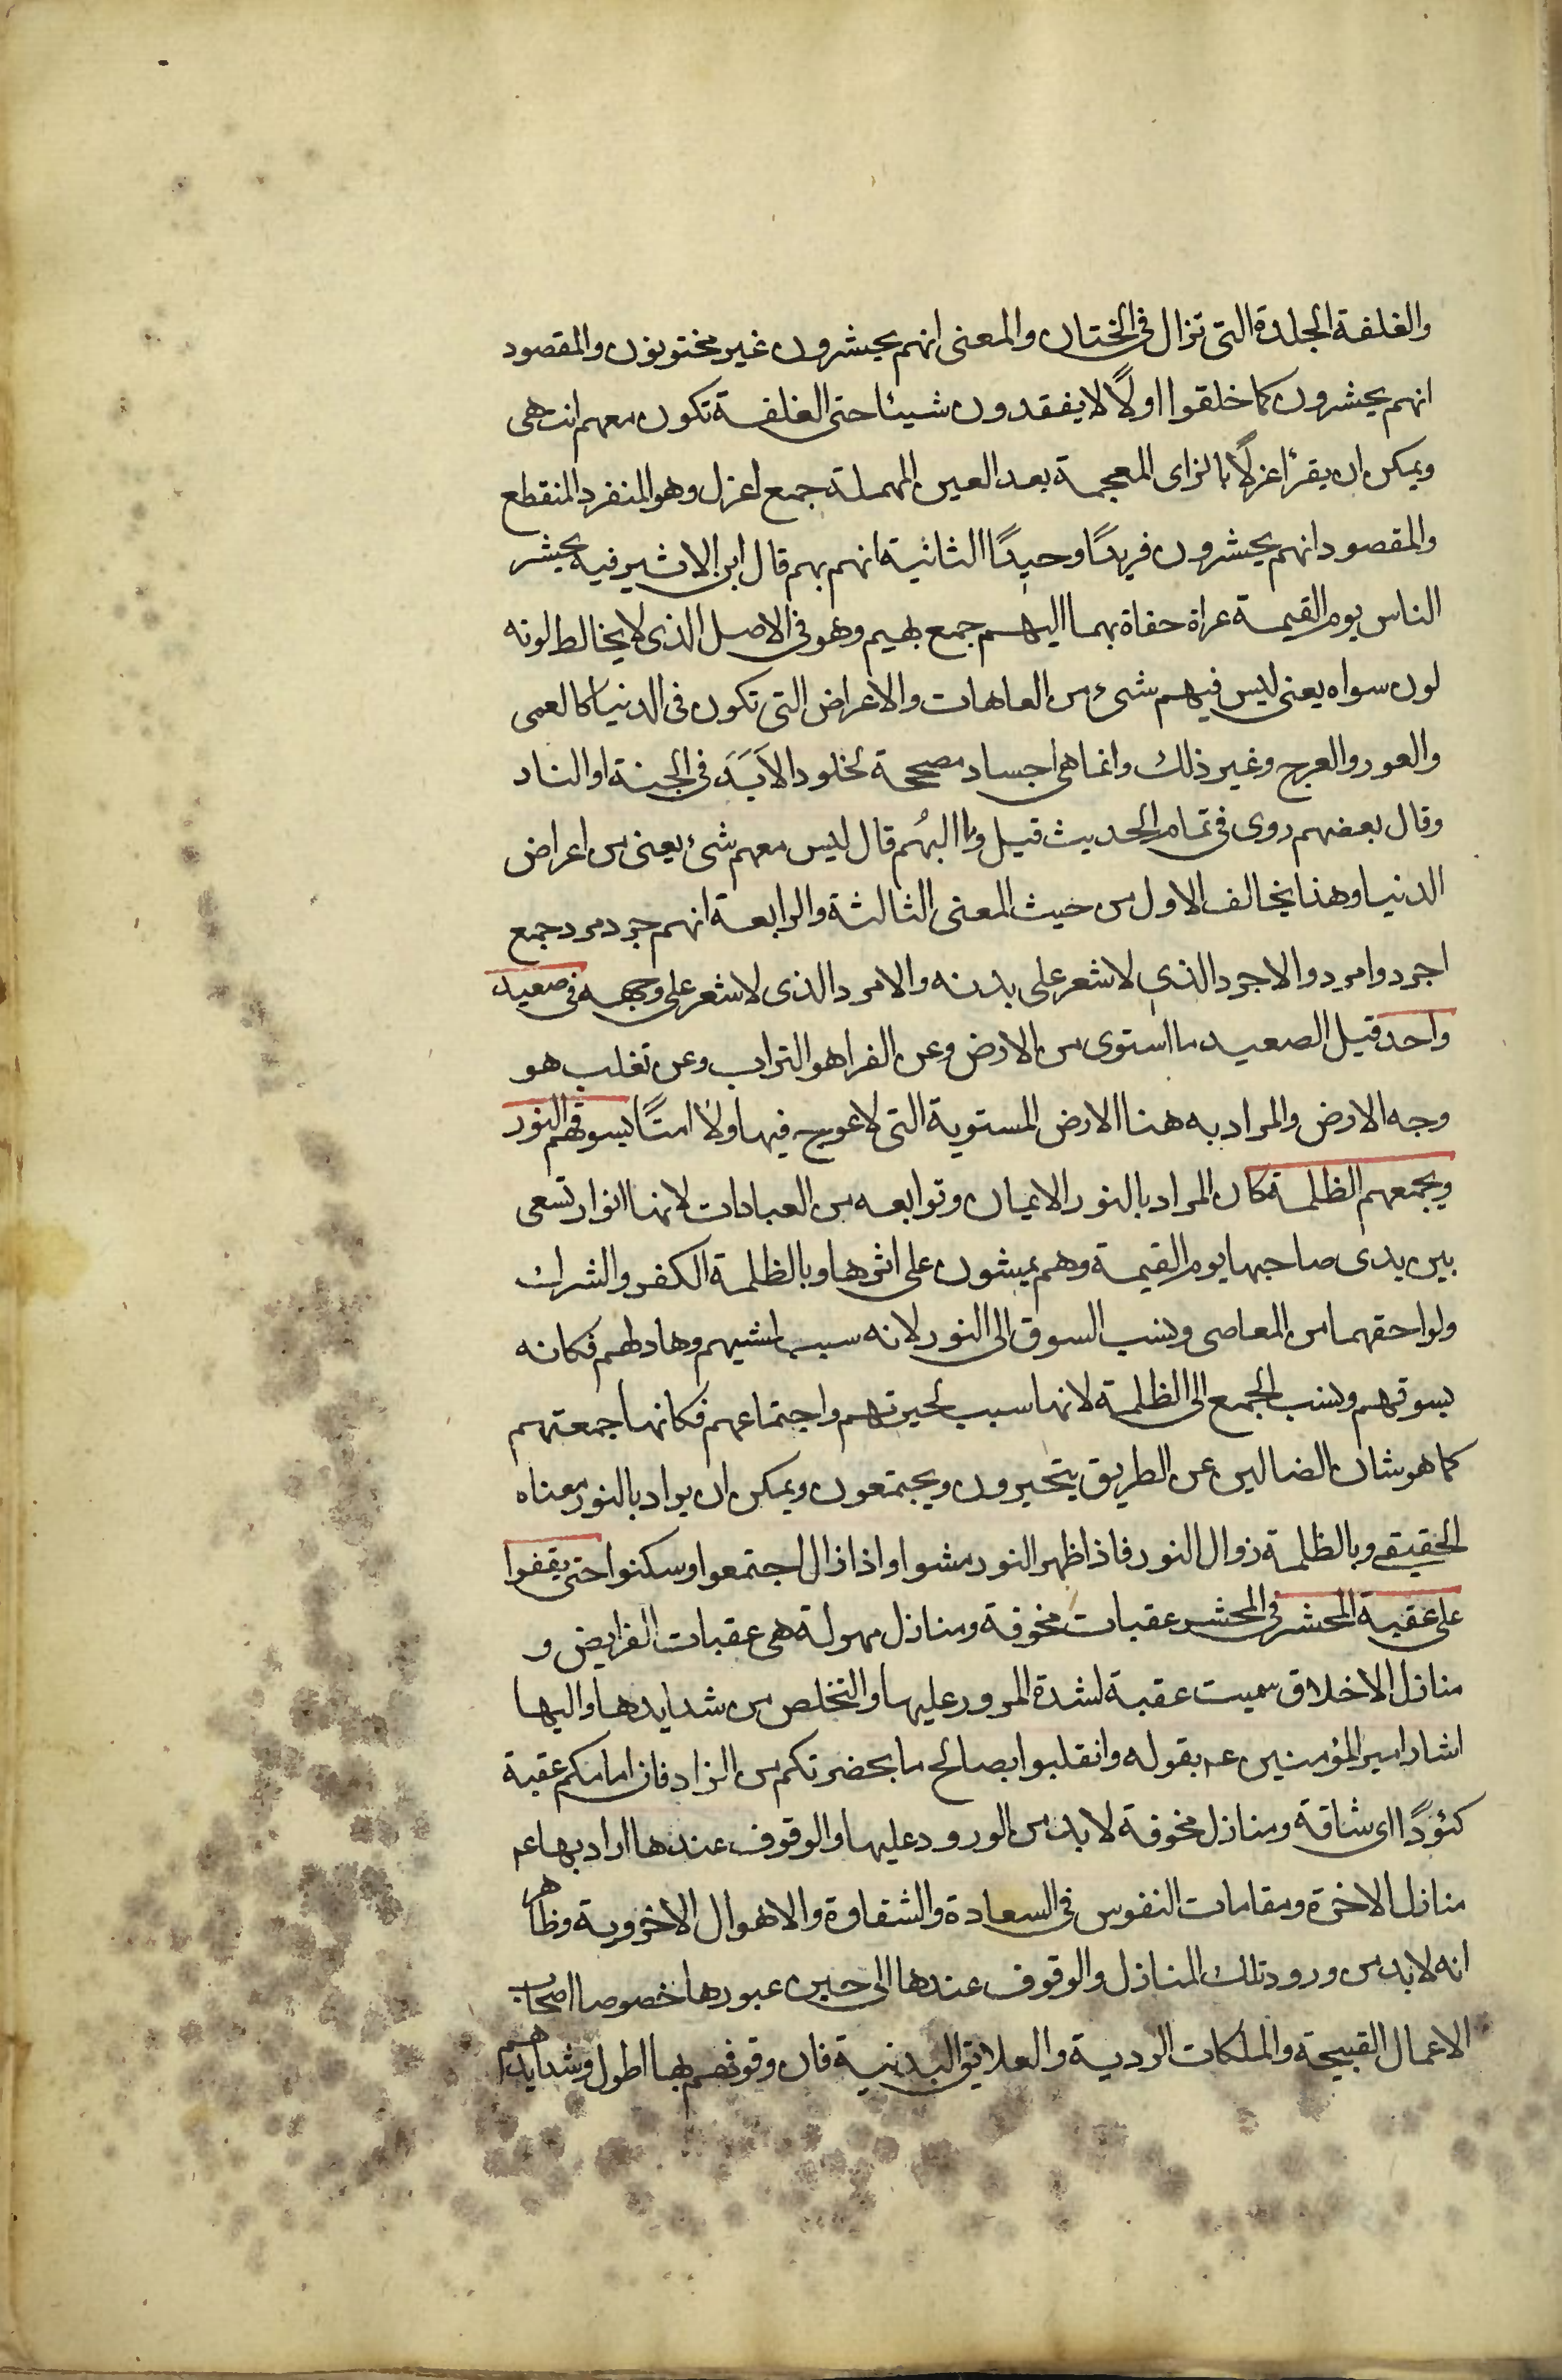 والغلفة الجلدة التى تزال فى الختان والمعنى انهم يحشرون غير مختونون والمقصود
انهم يحشرون كما خلقوا اولًا لا يفقدون شيئا حتى الغلفة تكون معهم انتهى
ويمكن ان يقرأ عزلًا بالزاى المعجمة بعد العين المهملة جمع اعزل وهو المنفرد المنقطع
والمقصود انهم يحشرون فريدًا وحيدًا الثانية انهم بهم قال ابن الاثير فيه يحشر
الناس يوم القيمة عراة حفاة بهما البهم جمع بهيم وهو فى الاصل الذى لا يخالط لونه
لون سواه يعنى ليس فيهم شىء من العاهات والاعراض التى تكون فى الدنيا كالعمى
والعور والعرج وغير ذلك وانما هى اجساد مصححة لخلود الاَبَدَ فى الجنة او النار
وقال بعضهم روى فى تمام الحديث قيل وما البُهم قال ليس معهم شىء يعنى من اعراض
الدنيا وهذا يخالف الاول من حيث المعنى الثالثة والرابعة انهم جرد مرد جمع
اجرد وامرد والاجرد الذى لا شعر على بدنه والامرد الذى لا شعر على وجهه فى صعيد
واحد قيل الصعيد ما استوى من الارض وعن الفرا هو التراب وعن تغلب هو
وجه الارض والمراد به هنا الارض المستوية التى لا عوج فيها ولا امتًا يسوقهم النور
ويجمعهم الظلمة كان المراد بالنور الايمان وتوابعه من العبادات لانها انوار تسعى
بين يدى صاحبها يوم القيمة وهم يمشون على اثرها وبالظلمة الكفر والشرك
ولواحقهما من المعاصى ونسب السوق الى النور لانه سبب لمشيهم وهاد لهم فكانه
يسوقهم ونسب الجمع الى الظلمة لانها سبب لحيرتهم واجتماعهم فكانها جمعتهم
كما هو شان الضالين عن الطريق يتحيرون ويجتمعون ويمكن ان يراد بالنور معناه
الحقيقى وبالظلمة زوال النور فاذا ظهر النور مشوا واذا زال اجتمعوا وسكنوا حتى يقفوا
على عقبة المحشر فى المحشر عقبات مخوفة ومنازل مهولة هى عقبات الفرايض و
منازل الاخلاق سميت عقبة لشدة المرور عليها والتخلص من شدايدها واليها
اشار امير المؤمنين عم بقوله وانقلبوا بصالح ما بحضرتكم من الزاد فان امامكم عقبة
كئودًا اى شاقة ومنازل مخوفة لا بد من الورود عليها والوقوف عندها اراد بها عم
منازل الاخرة ومقامات النفوس فى السعادة والشقاوة والاهوال الاخروية وظاهر
انه لا بد من ورود تلك المنازل والوقوف عندها الى حين عبورها خصوصا اصحاب
الاعمال القبيحة والملكات الردية والعلايق البدنية فان وقوفهم بها اطول وشدايدهم